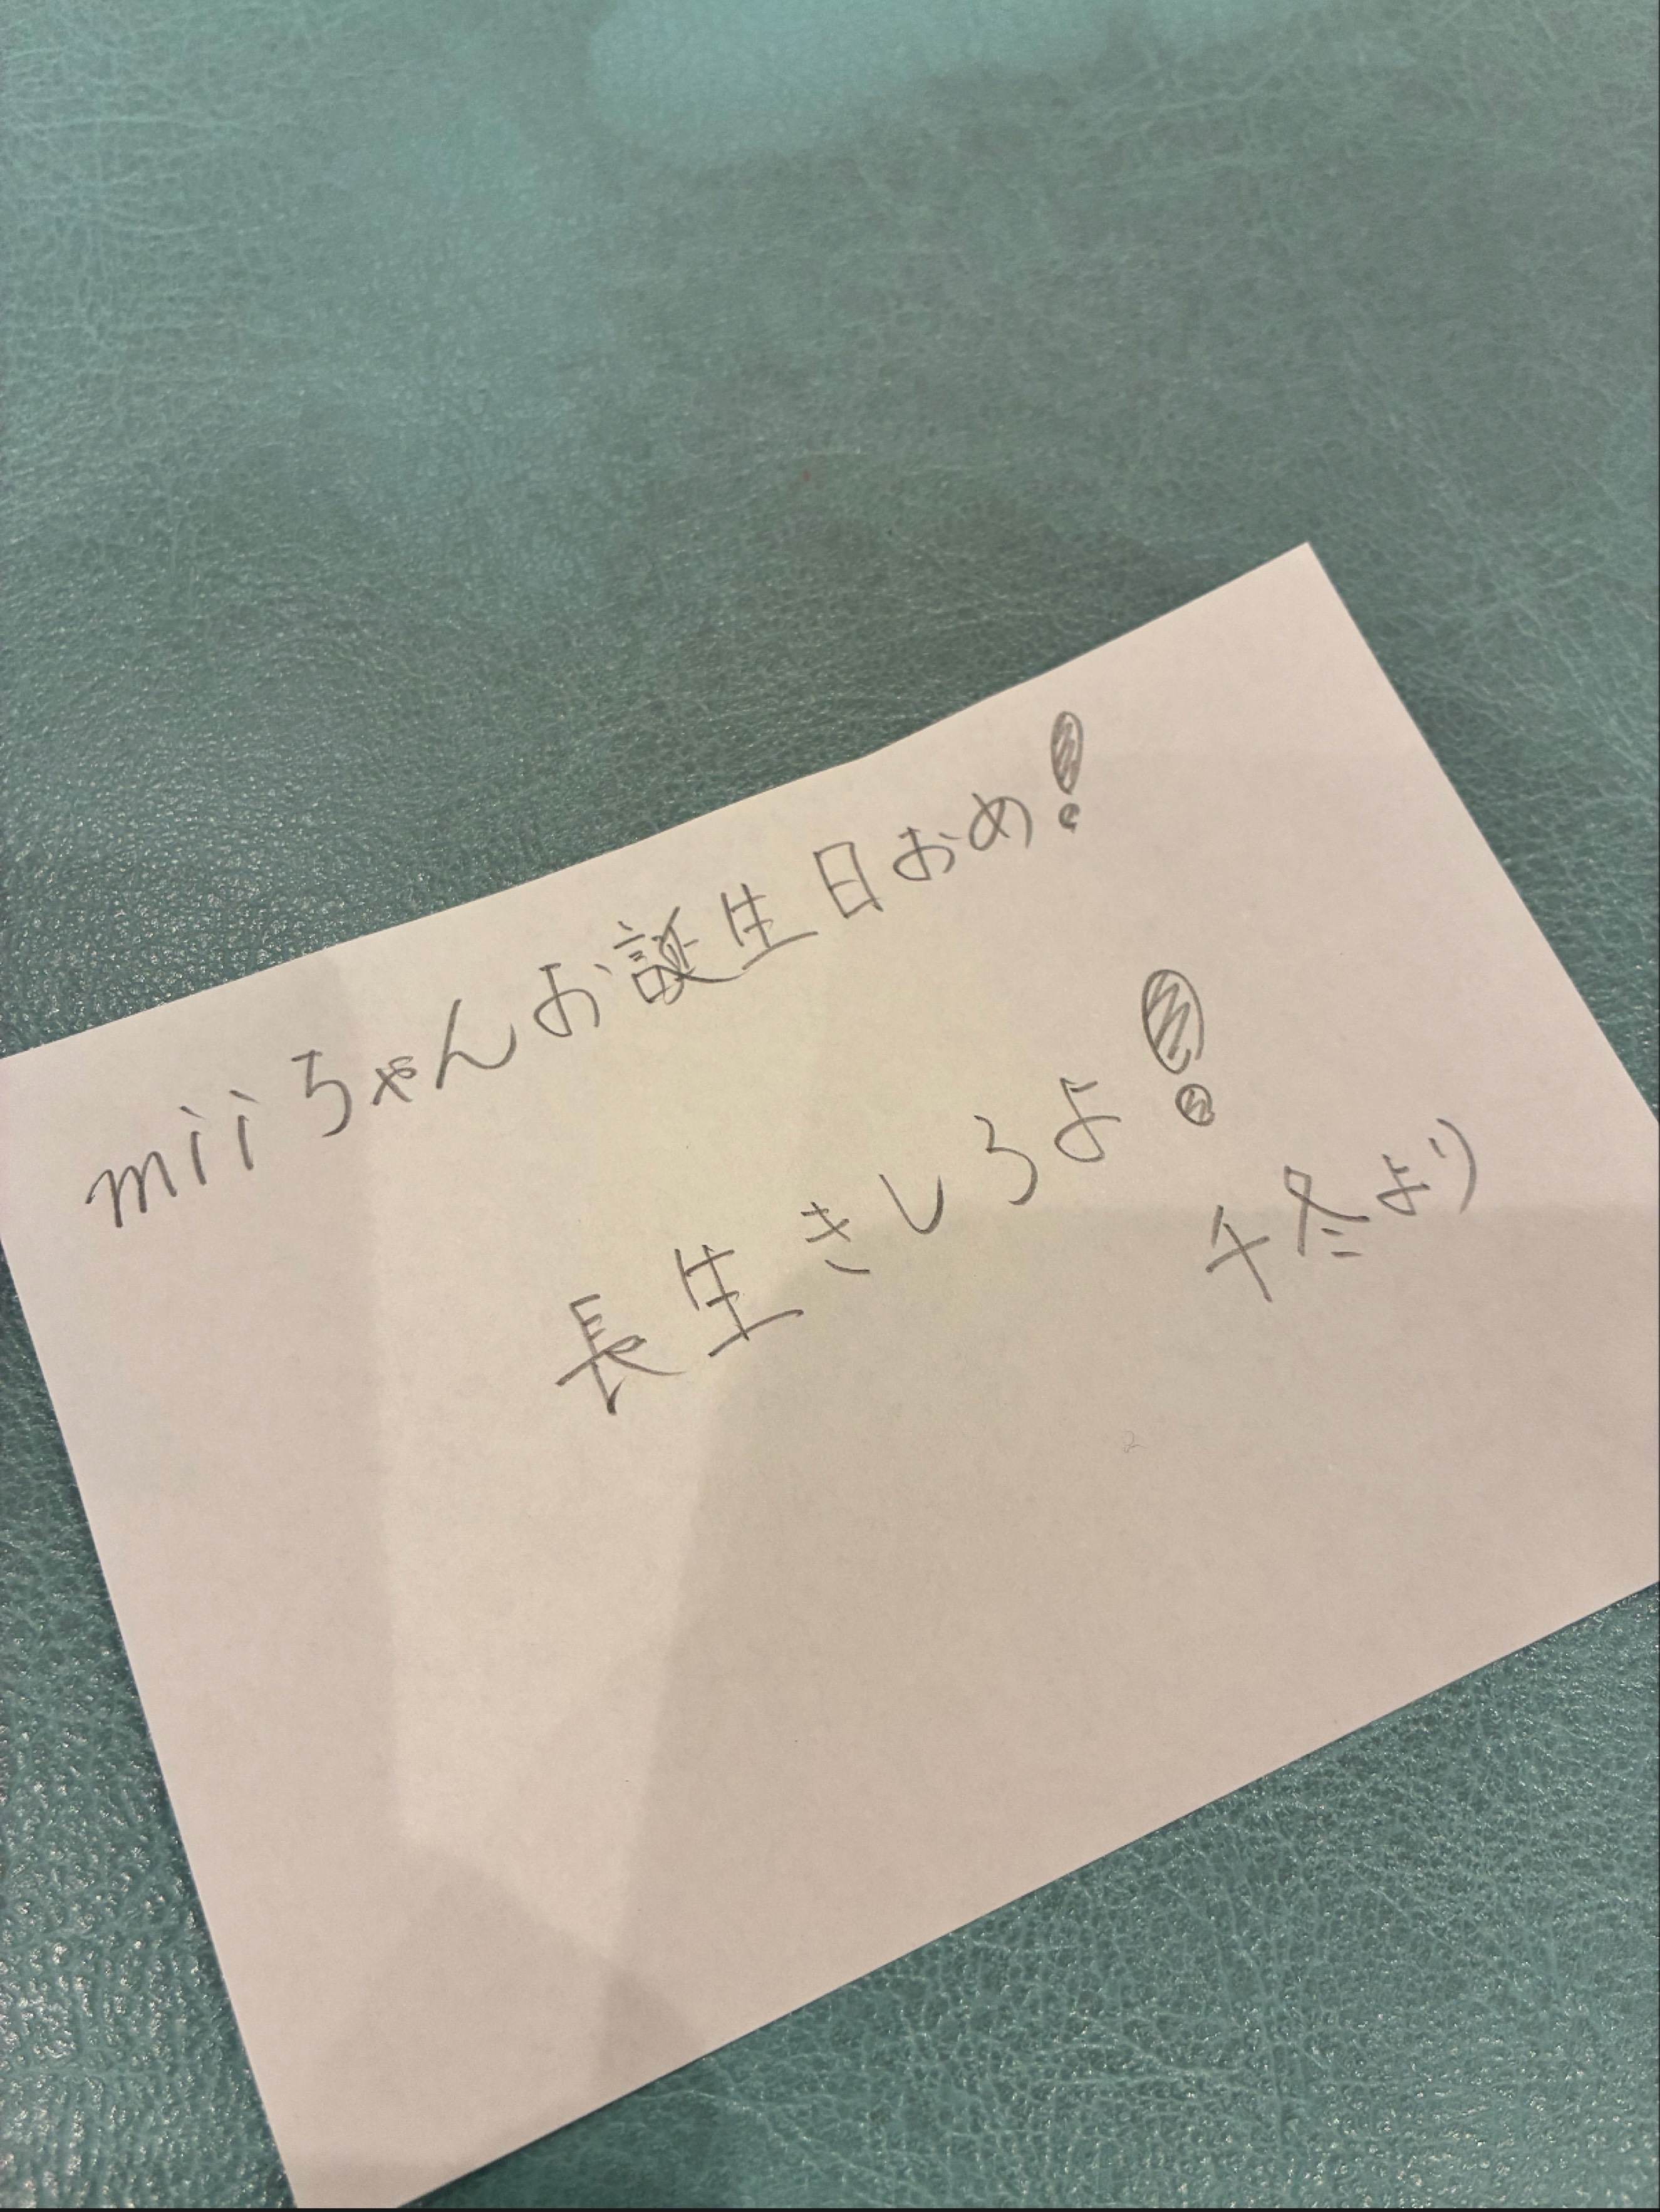 miiちゃんお誕生日おめ!
長生きしろよ!
千冬より